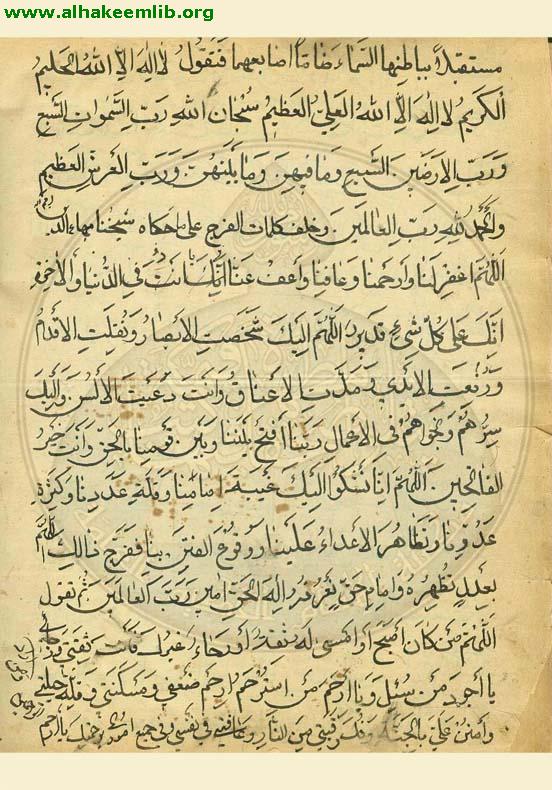 www.alhakeemlib.org
مستقبلاً بباطنها السماء ضامّاً اصابعهما فتقول لا اله الا الله الحليم
الكريم لا اله الا الله العلي العظيم سبحان الله رب السموات السبع
ورب الارضين السبع وما فيهن وما بينهن ورب العرش العظيم
والحمد لله رب العالمين وخلف كلمات الفرج على ما حكاه شيخنا بهاء الدين
اللهم اغفر لنا وارحمنا وعافنا واعف عنا انك انت في الدنيا والآخرة
انك على كل شيء قدير اللهم اليك شخصت الأبصار ونقلت الاقدام
ورفعت الايدي ومدّت الاعناق وانت دعيت بالألسن واليك
سرهم ونجواهم في الاعمال ربنا افتح بيننا وبين قومنا بالحق وانت خير
الفاتحين اللهم انا نشكوا اليك غيبة امامنا وقلة عددنا وكثرة
عدونا وتظاهر الاعداء علينا ووقوع الفتن بنا ففرج ذلك اللهم
بعدل تظهره وامام حق تعرفه اله الحق امين رب العالمين ثم تقول
اللهم من كان اصبح او امسى له ثقة أو رجاء غيرك فانت ثقتي ورجائي
يا أجود من سئل ويا ارحم من استرحم ارحم ضعفي ومسكنتي وقلة حيلتي
وامنن علي بالجنة وفك رقبتي من النار وعافني في نفسي وفي جميع اموري برحمتك يا ارحم